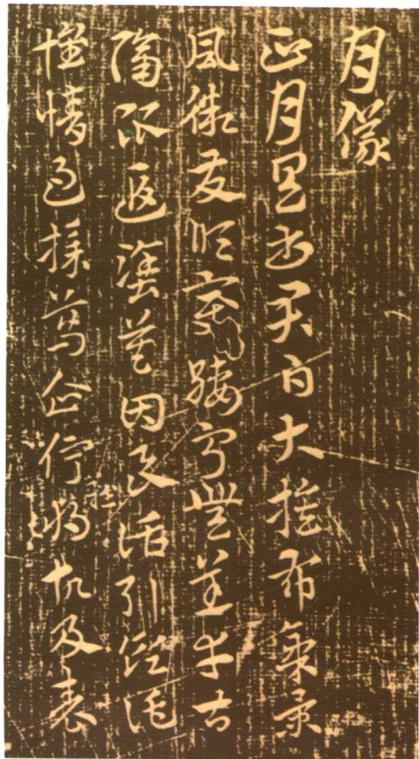 月儀
正月具書君白大蔟布氣景
風微發順變綏寧無恙幸甚
隔限遐塗莫因良話引領託
懷情過採葛企佇難將故及表